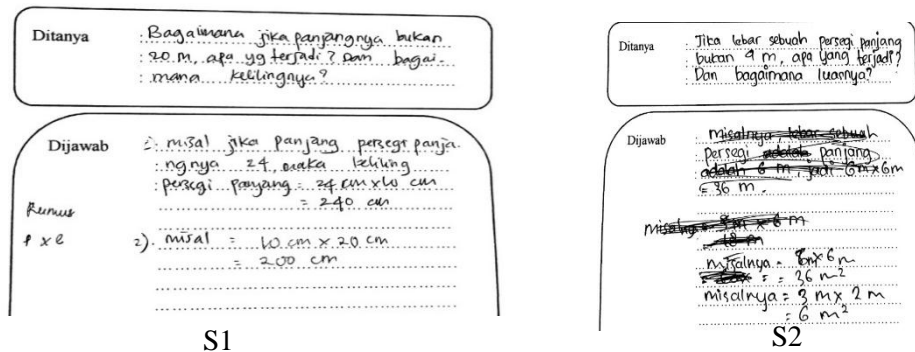 Ditanya : Bagaimana jika panjangnya bukan
: 20 m, apa yg terjadi? Dan bagai-
: mana kelilingnya?
Dijawab : misal jika panjang persegi panja-
ngnya 24, maka keliling
persegi panjang = 24 cm x 10 cm
= 240 cm
Rumus
p x l
2). misal = 10 cm x 20 cm
= 200 cm
S1
Ditanya : Jika lebar sebuah persegi panjang
bukan 4 m, apa yang terjadi?
Dan bagaimana luasnya?
Dijawab : misalnya, lebar sebuah
persegi adalah panjang
adalah 6 m, jadi 6m x 6m
= 36 m.
misalnya = m x 6 m
= 18 m
misalnya = 6m x 6 m
= 36 m²
misalnya = 3 m x 2 m
= 6 m²
S2